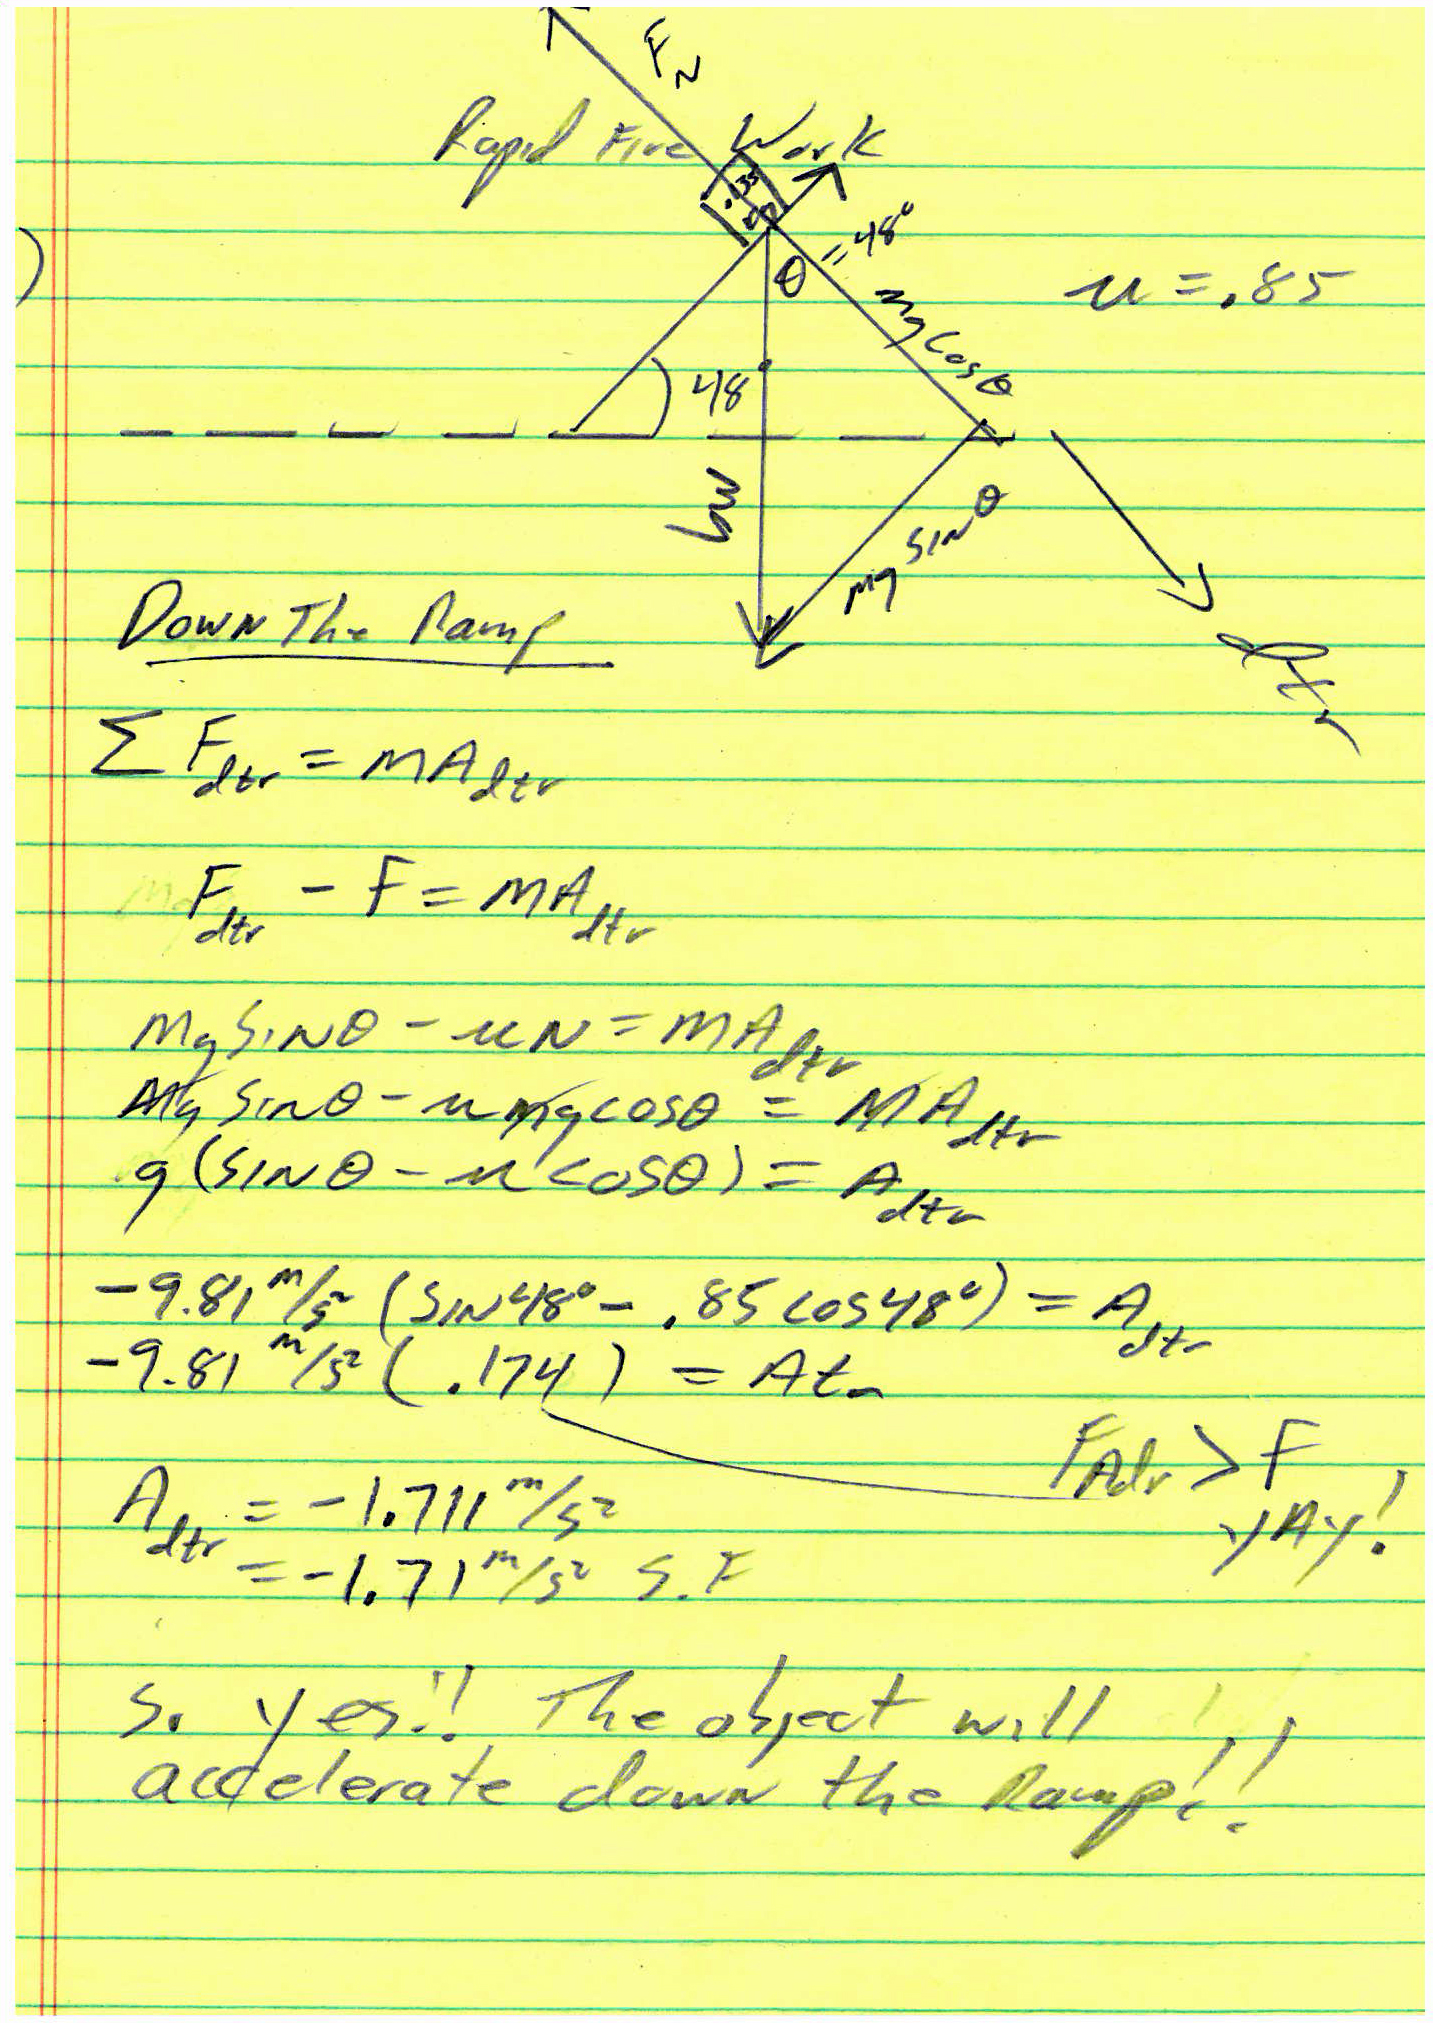 F_N
Rapid Fire Work
.135
θ = 48°
u = .85
mg cos θ
48°
W
mg sin θ
dtr
Down The Ramp
Σ F_dtr = MA_dtr
F_dtr - F = MA_dtr
Mg Sin θ - uN = MA_dtr
Mg Sin θ - u Mg cos θ = MA_dtr
g (SIN θ - u cos θ) = A_dtr
-9.81 m/s² (SIN 48° - .85 cos 48°) = A_dtr
-9.81 m/s² (.174) = A_tr
F_Adr > F
YAY!
A_dtr = -1.711 m/s²
= -1.71 m/s² S.F
So yes!! The object will
accelerate down the Ramp!!